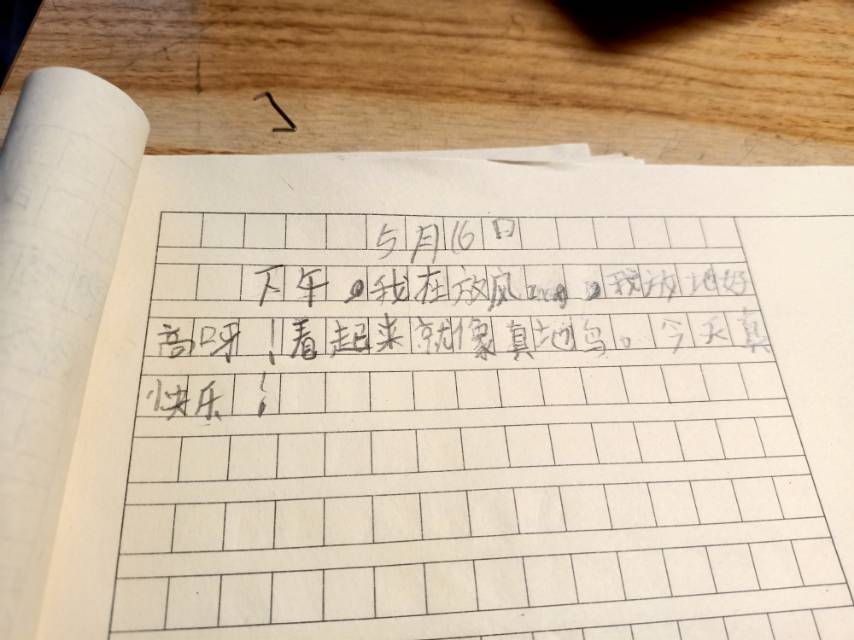 5月16日
下午，我在放风，我放地好
高呀！看起来就像真地鸟。今天真
快乐！